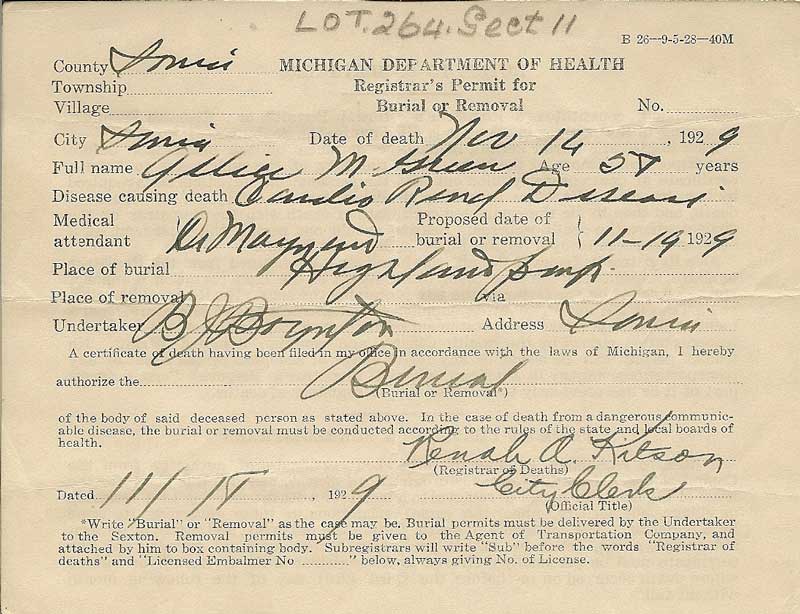 LOT. 264. Sect 11
B 26—9-5-28—40M
County Ionia
MICHIGAN DEPARTMENT OF HEALTH
Township
Registrar's Permit for
Village
Burial or Removal
No.
City Ionia Date of death Nov 14, 1929
Full name M Green Age years
Disease causing death Cardio Renal Disease
Medical attendant Dr Maynard Proposed date of burial or removal 11-19 1929
Place of burial Highland Park
Place of removal via
Undertaker B J Boynton Address Ionia
A certificate of death having been filed in my office in accordance with the laws of Michigan, I hereby
authorize the Burial
(Burial or Removal*)
of the body of said deceased person as stated above. In the case of death from a dangerous communic-
able disease, the burial or removal must be conducted according to the rules of the state and local boards of
health.
A. Kitson
(Registrar of Deaths)
City Clerk
(Official Title)
Dated 11/18, 1929
*Write "Burial" or "Removal" as the case may be. Burial permits must be delivered by the Undertaker
to the Sexton. Removal permits must be given to the Agent of Transportation Company, and
attached by him to box containing body. Subregistrars will write "Sub" before the words "Registrar of
deaths" and "Licensed Embalmer No ............" below, always giving No. of License.